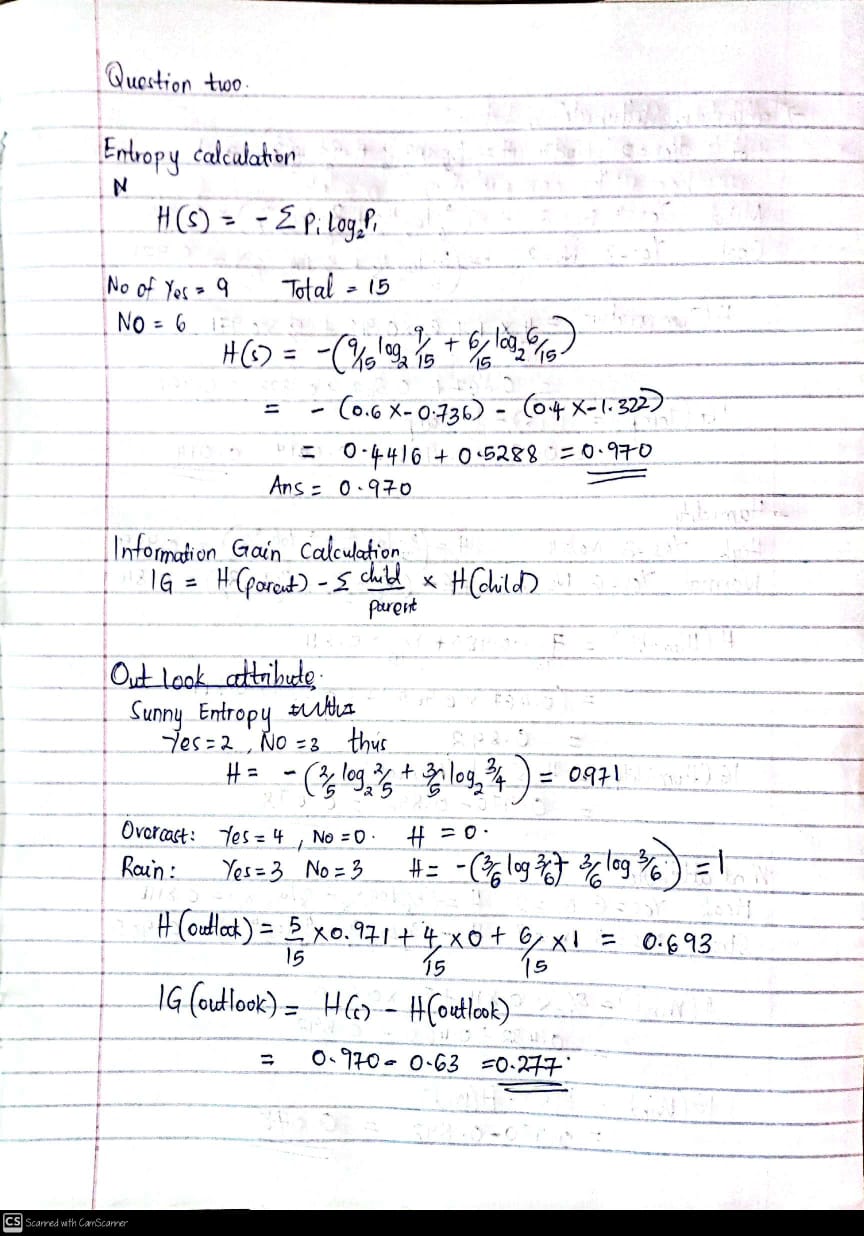 Question two.
Entropy calculation
N
H(S) = - Σ Pi log₂Pi
No of Yes = 9 Total = 15
NO = 6
H(s) = -(9/15 log₂ 9/15 + 6/15 log₂ 6/15)
= - (0.6 x-0.736) - (0.4 x-1.322)
= 0.4416 + 0.5288 = 0.970
Ans = 0.970
Information Gain Calculation
IG = H(parent) - Σ child/parent x H(child)
Out look attribute.
Sunny Entropy
Yes = 2, NO = 3 thus
H = - (2/5 log₂ 2/5 + 3/5 log₂ 3/4) = 0.971
Overcast: Yes = 4, No = 0. H = 0.
Rain: Yes = 3 No = 3 H = -(3/6 log 3/6 + 3/6 log 3/6) = 1
H(outlook) = 5/15 x 0.971 + 4/15 x 0 + 6/15 x 1 = 0.693
IG (outlook) = H(s) - H(outlook)
= 0.970 - 0.63 = 0.277
CS Scanned with CamScanner